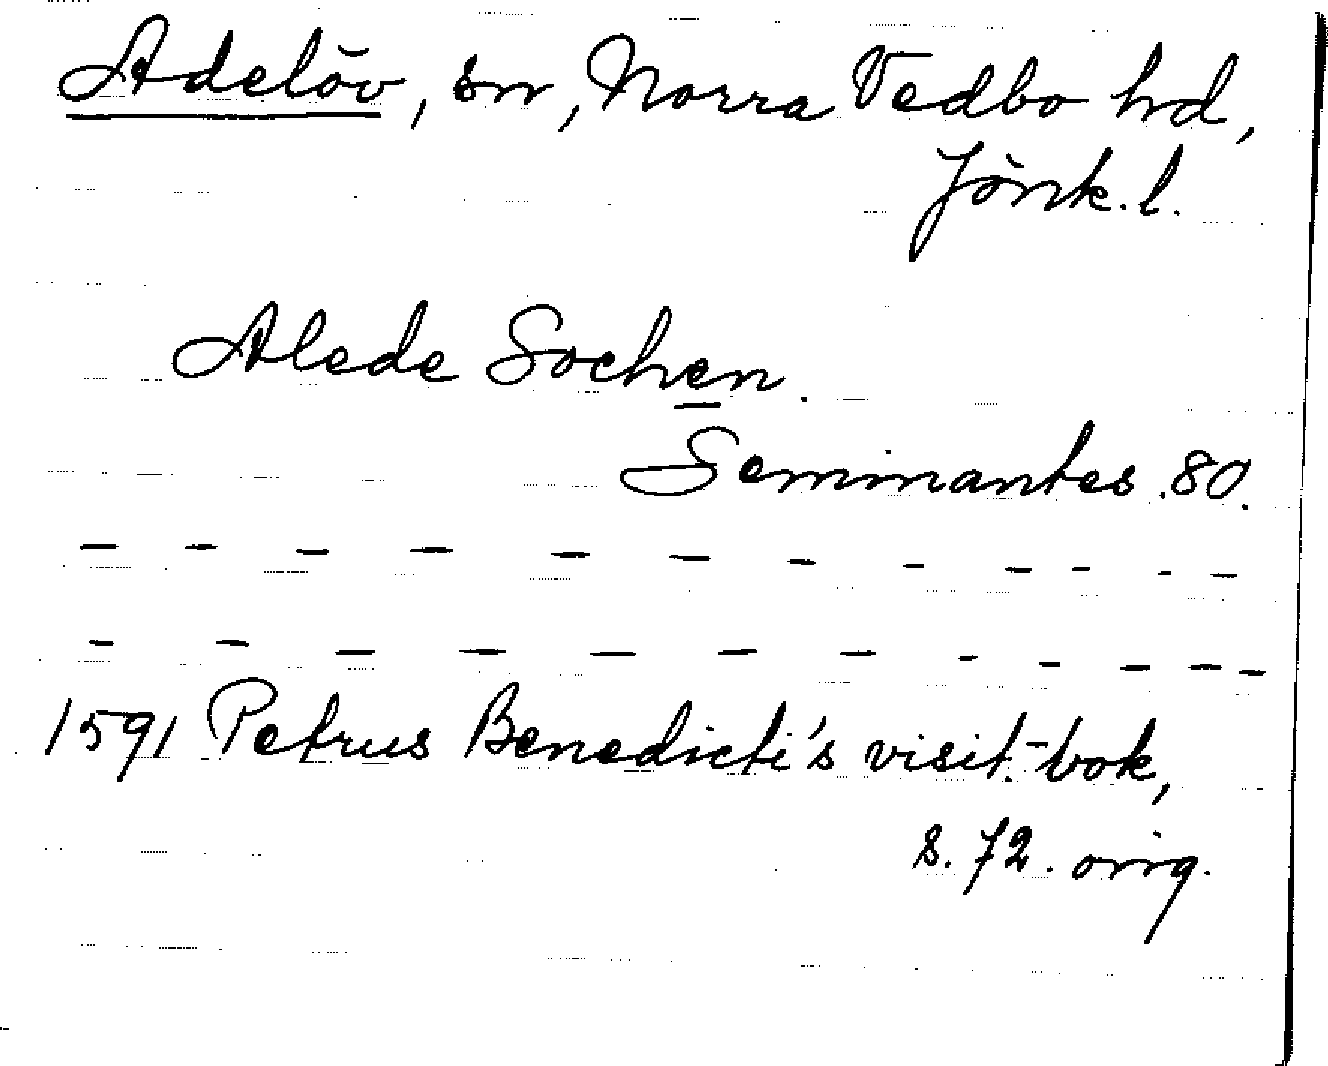 Adelöv, sn, Norra Vedbo hd,
Jönk.l.
Alede Sochen.
Seminantes .80.
— — — — — — — — — — — —
— — — — — — — — — — — —
1591 Petrus Benedicti's visit.-bok,
s. 72. orig.